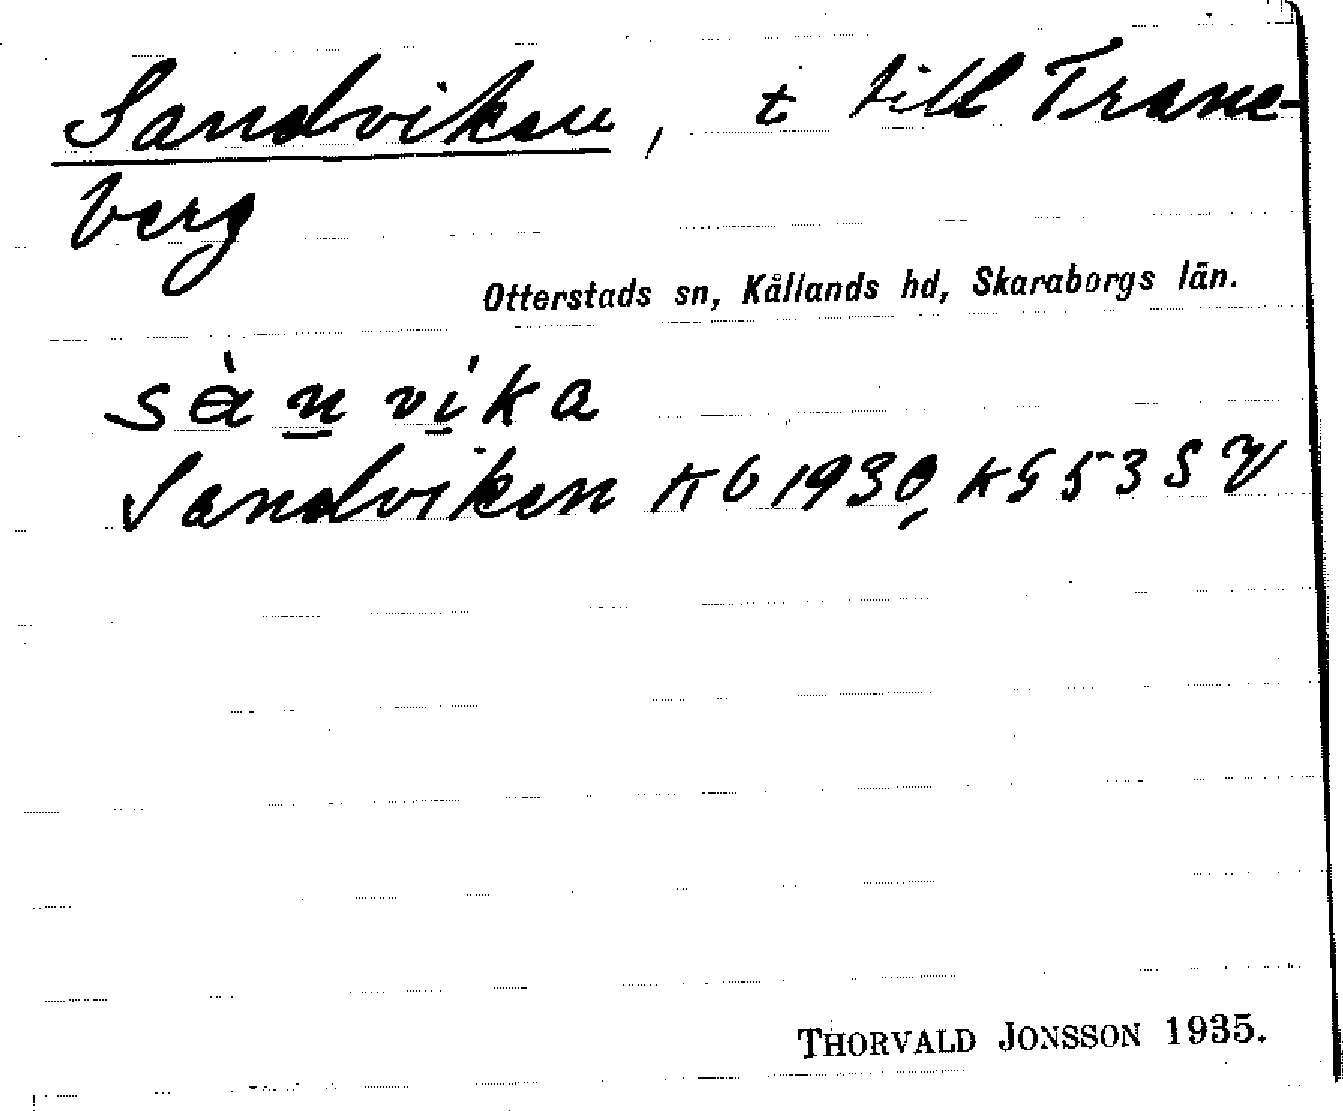 Sandviken, t till Trane-
berg
Otterstads sn, Kållands hd, Skaraborgs län.
sànvíka
Sandviken Kb 1930, KG 53 SV
THORVALD JONSSON 1935.